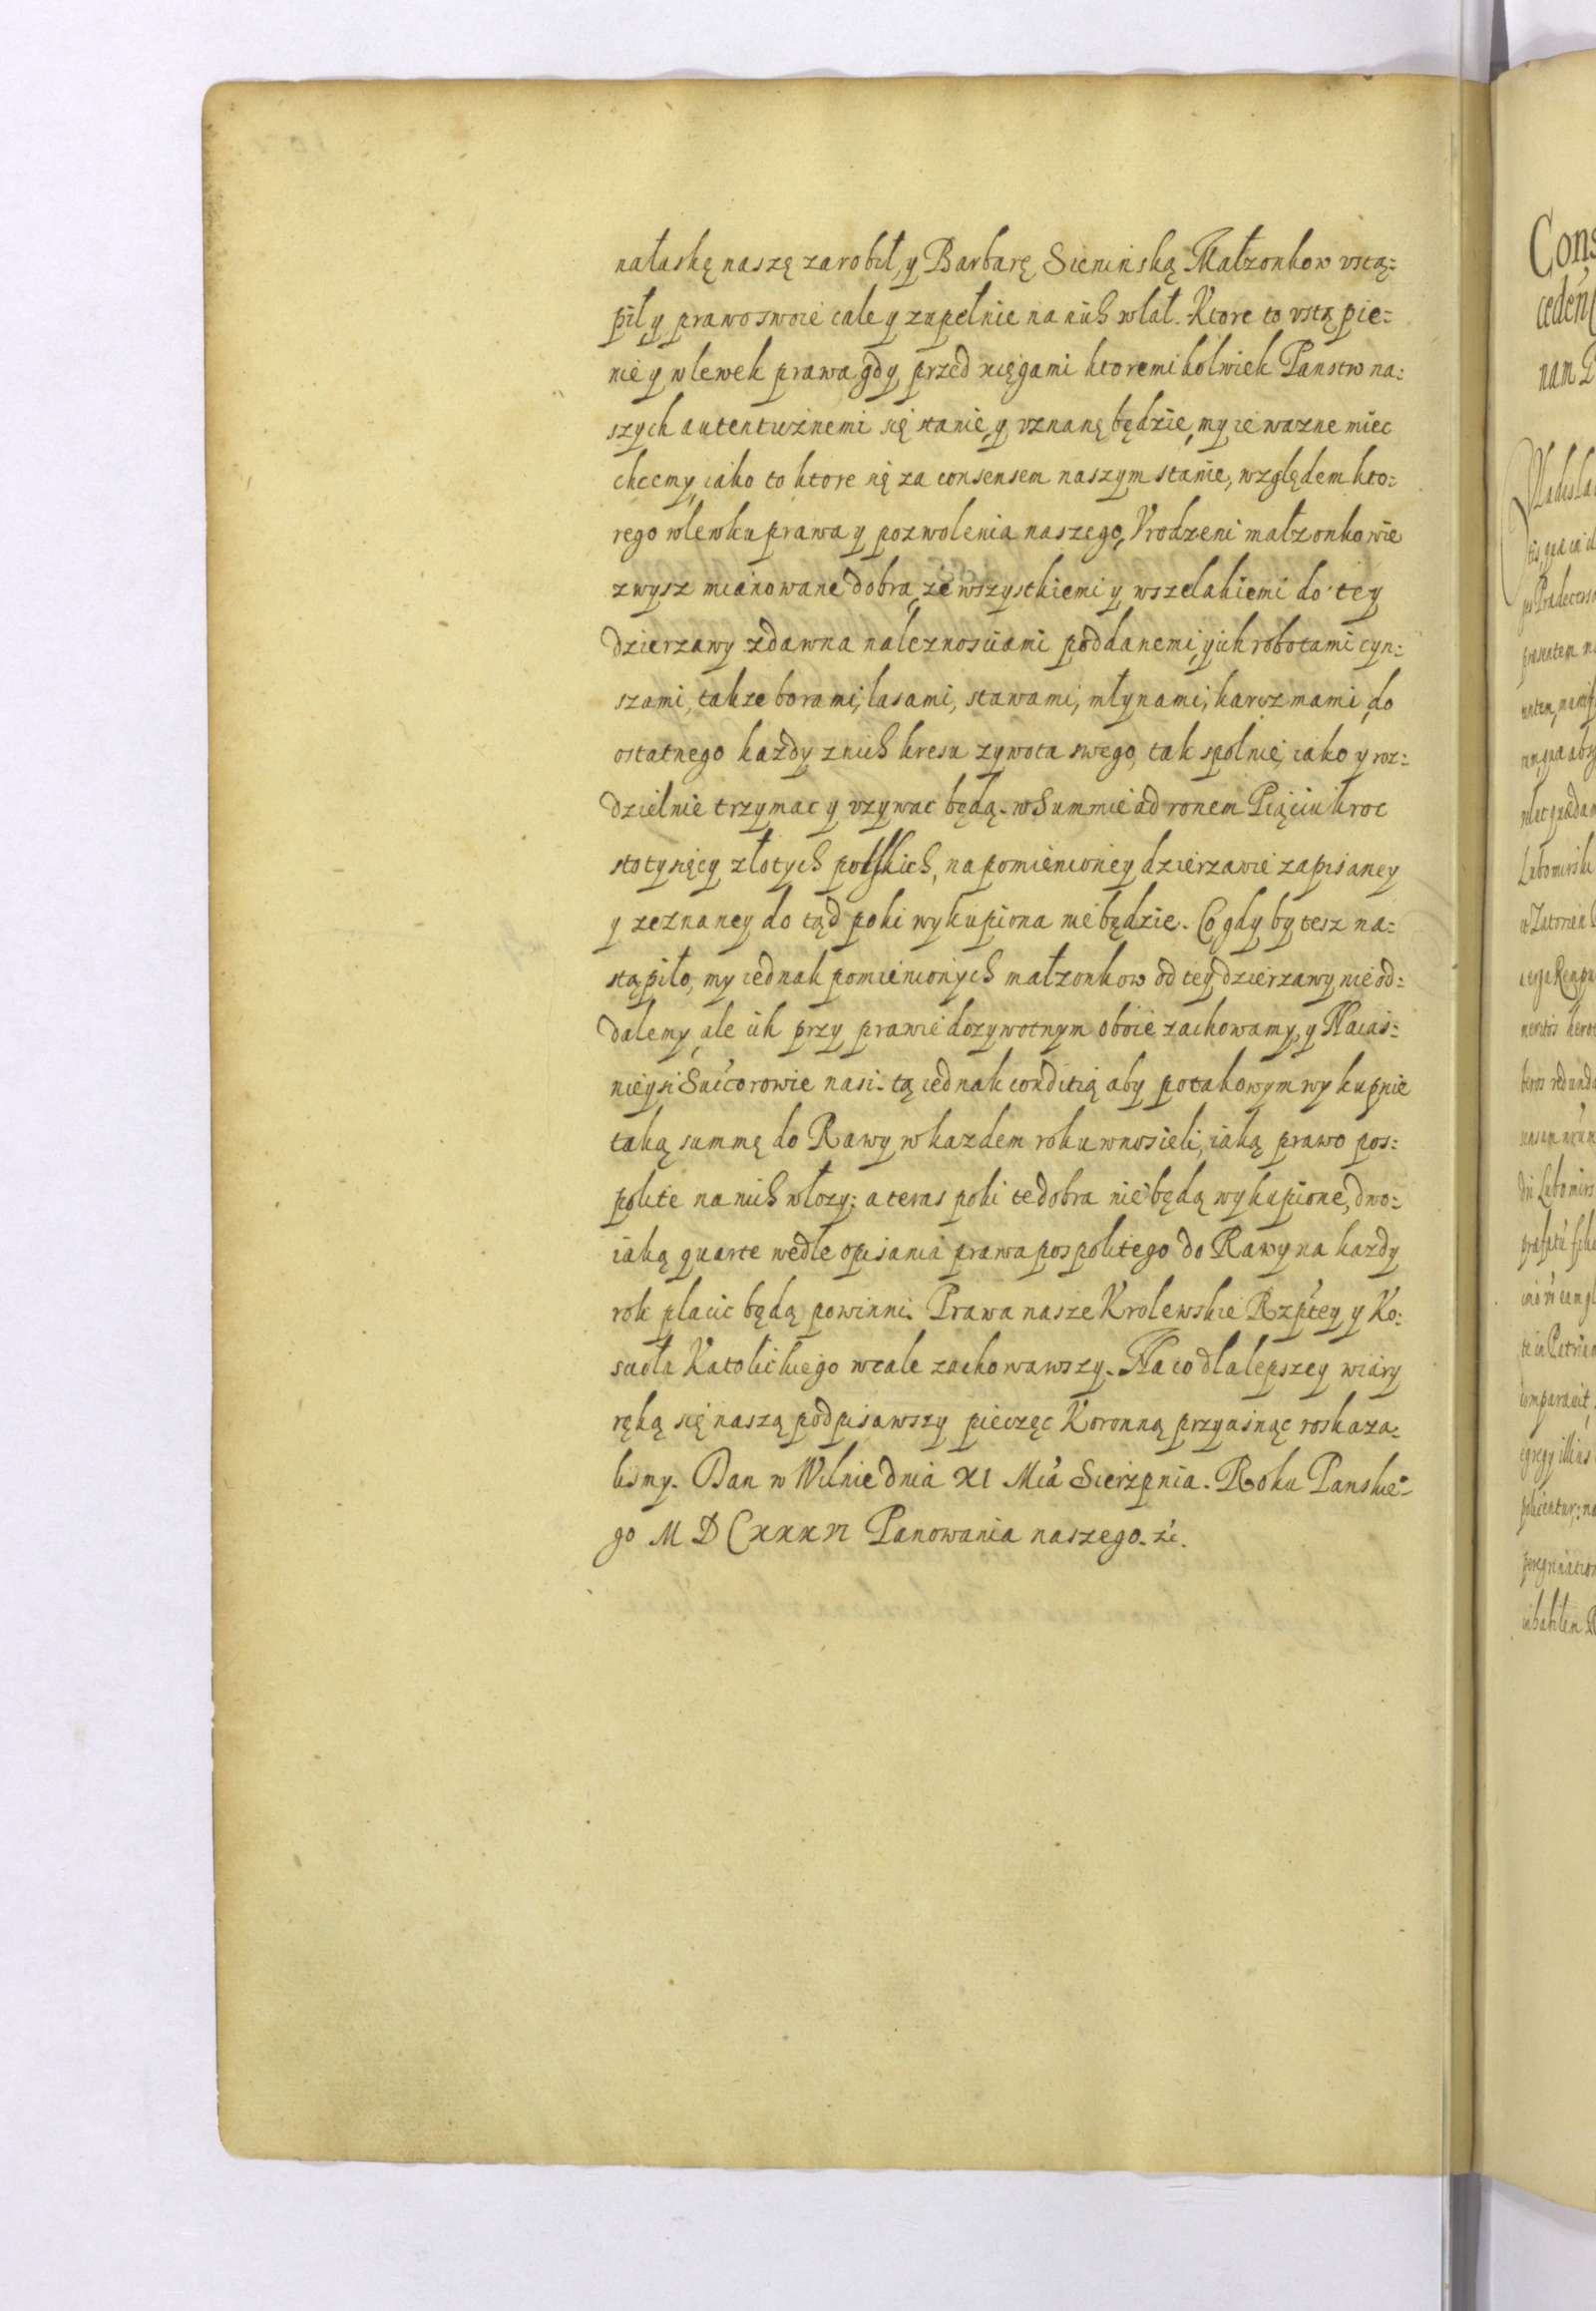 nałaskę naszę zarobił, y Barbarę Sieninską Małzonkow vstą=
pił y prawo swoie cale y zupełnie na nich wlał. Ktore to vstąpie=
nie y wlewek prawa gdy przed xięgami ktoremi kolwiek Panstw na=
szych autenticznemi się stanie, y vznanę będzie, my ie wazne miec
chcemy, iako to ktore się za consensem naszym stanie, względem kto=
rego wlewku prawa y pozwolenia naszego, Vrodzeni małzonkowie
zwysz mianowane dobra, ze wszystkiemi y wszelakiemi do tey
dzierzawy zdawna naleznosciami poddanemi, y ich robotami cyn=
szami, takze borami, lasami, stawami, młynami, karczmami, do
ostatnego kazdy z nich kresu zywota swego, tak spolnie, iako y roz=
dzielnie trzymac y vzywac będą. w Summie ad ronem Pięciukroc
stotysięcy złotych polskich, na pomienioney dzierzawie zapisaney
y zeznaney do tąd poki wykupiona nie będzie. Co gdy by tesz na=
stąpiło, my iednak pomienionych małzonkow od tey dzierzawy nie od=
dalemy, ale ich przy prawie dozywotnym oboie zachowamy, y Naias=
nieysi Succorowie nasi. tą iednak conditią aby potakowym wykupnie
taką summę do Rawy w kazdem roku wnosieli, iaką prawo pos=
polite na nich włozy; a teras poki te dobra nie będą wykupione, dwo=
iaką quarte wedle opisania prawa pospolitego do Rawy na kazdy
rok placic będą powinni. Prawa nasze Krolewskie Rzptey y Ko=
scioła Katolickiego wcale zachowawszy. Na co dla lepszey wiary
ręką się naszą podpisawszy pieczęc Koronną przycisnąc roskaza=
lismy. Dan w Wilnie dnia XI Mca Sierzpnia. Roku Panskie=
go M D C xxx vi Panowania naszego. &c.
Cons
nam
Lubomirski
peregrination